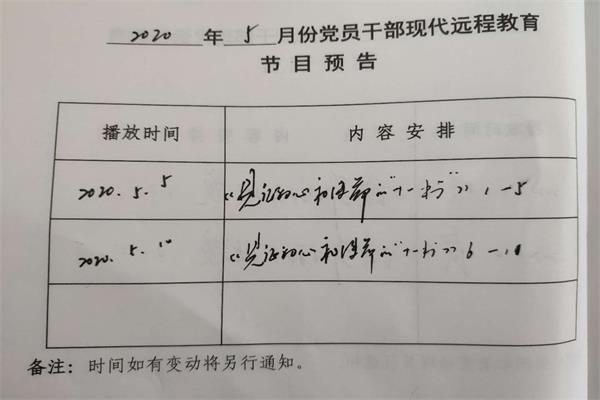 2020 年 5 月份党员干部现代远程教育
节目预告
播放时间 内容安排
2020.5.5 《见证初心和使命的"十一书"》1-5
2020.5.10 《见证初心和使命的"十一书"》6-11
备注：时间如有变动将另行通知。